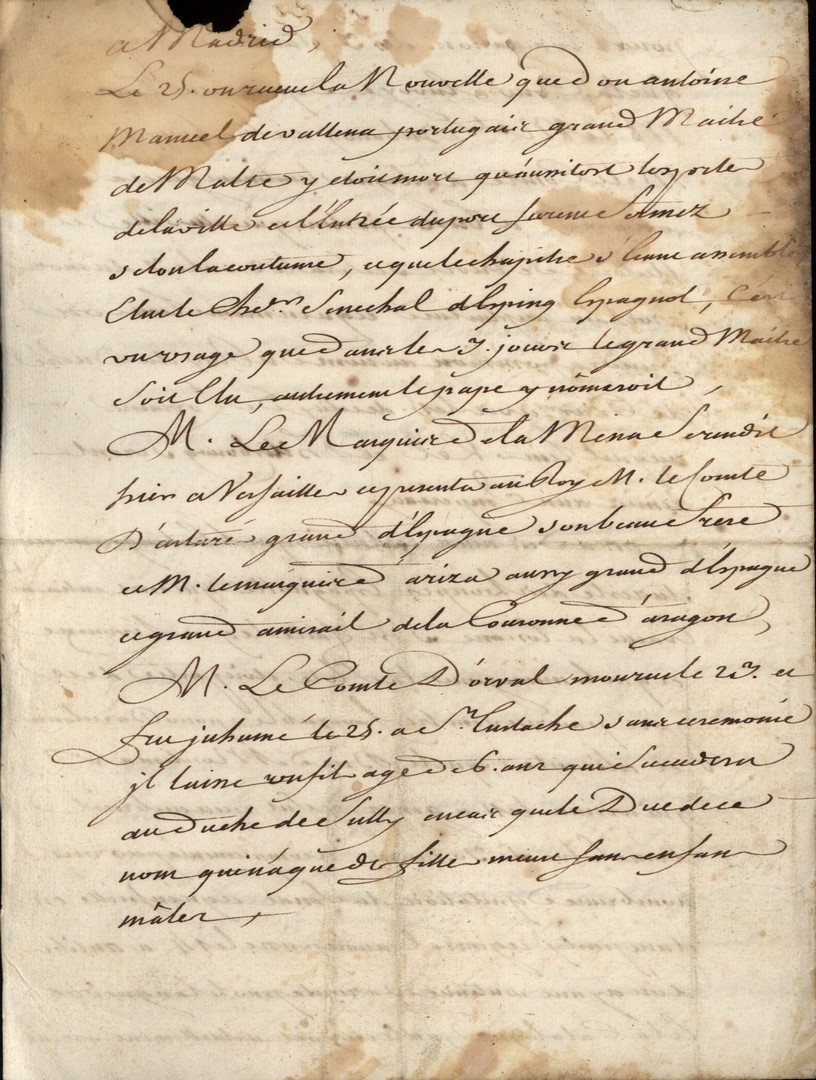 a Madrid,
Le 25. on receu la Nouvelle que don antoine
Manuel de vallena portugais grand Maitre
de Malte y etoit mort qu'aussitost les portes
de la ville et l'Entrée du port furent fermez
selon la coutume, et que le chapitre s'etant assemblé
Elut le Cher. Senechal d'Esping Espagnol, C'est
un usage que dans les 3. jours le grand Maitre
soit Elu, autrement le pape y nômeroit,
M. Le Marquis de la Mina se rendit
hier a Versailles et presenta au Roy M. le Comte
D'astaré grand d'Espagne son beau frere
et M. le marquis d'ariza aussy grand d'Espagne
et grand amirail de la Couronne d'aragon,
M. Le Comte D'orval mourut le 23. et
fut juhumé le 25. a St. Eustache sans ceremonie
jl laisse un fils agé de 6. ans qui succedera
au Duché de Sully en cas que le Duc de ce
nom qui n'a que des filles meure sans enfans
mâles,